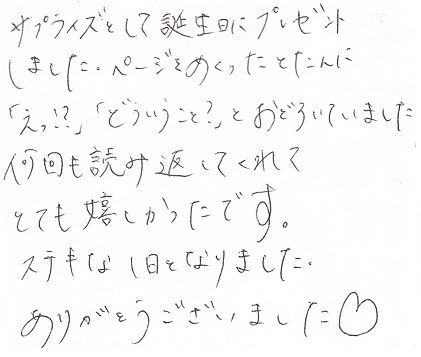 サプライズとして誕生日にプレゼント
しました。ページをめくったとたんに
「えっ!?」「どういうこと?」とおどろいていました
何回も読み返してくれて
とても嬉しかったです。
ステキな1日となりました。
ありがとうございました♡